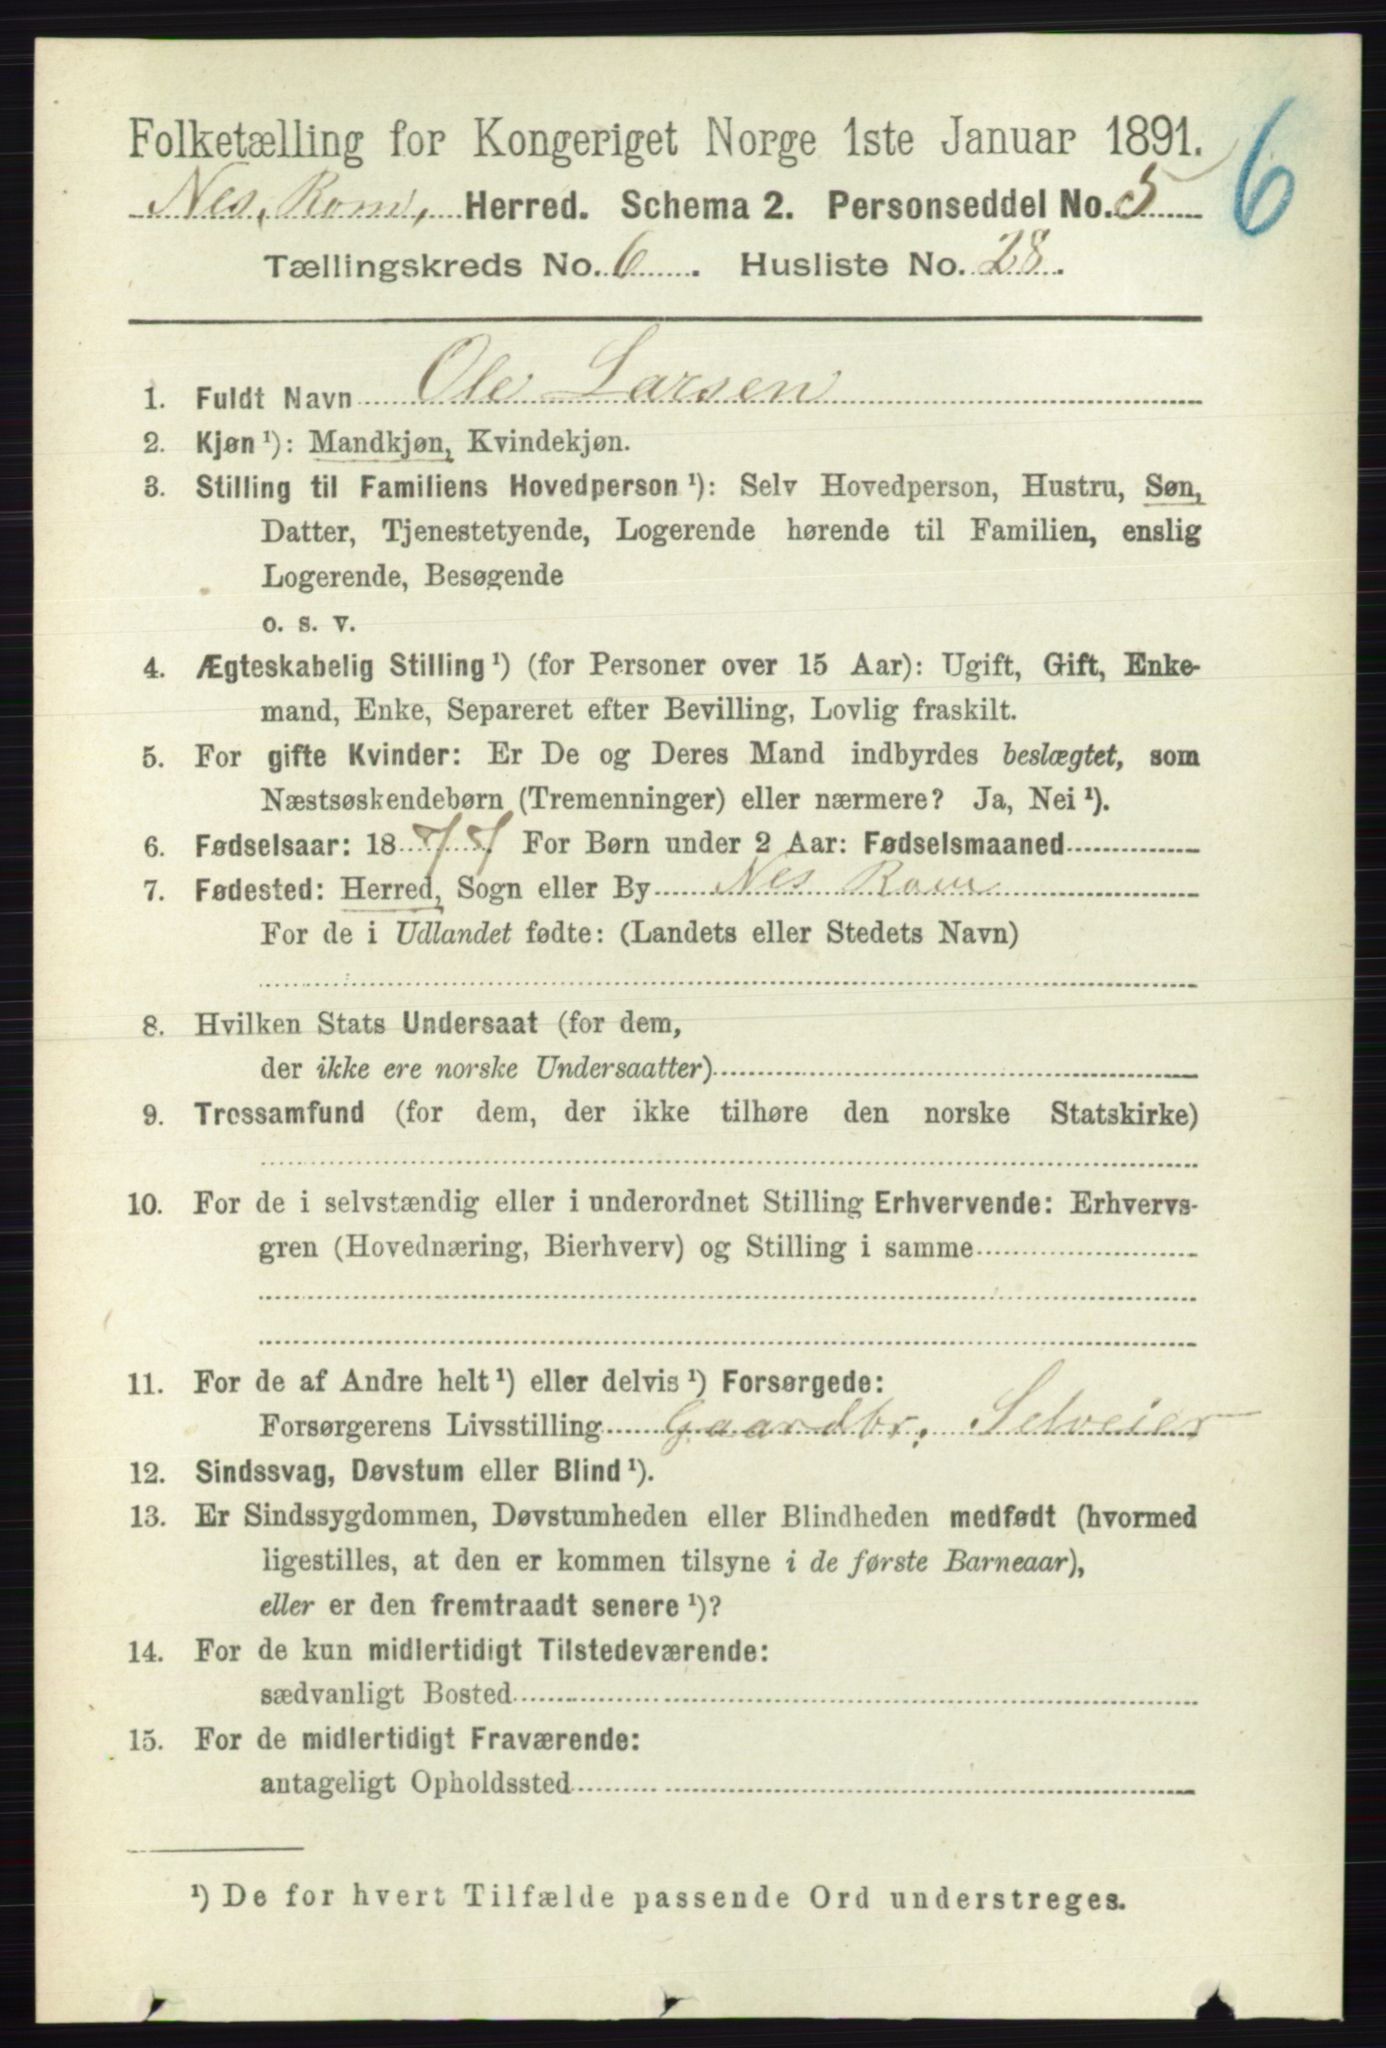 Folketælling for Kongeriget Norge 1ste Januar 1891.
6
Nes, Rom, Herred. Schema 2. Personseddel No. 5
Tællingskreds No. 6. Husliste No. 28.
1. Fuldt Navn Ole Larsen
2. Kjøn ¹): Mandkjøn, Kvindekjøn.
3. Stilling til Familiens Hovedperson ¹): Selv Hovedperson, Hustru, Søn,
Datter, Tjenestetyende, Logerende hørende til Familien, enslig
Logerende, Besøgende
o. s. v.
4. Ægteskabelig Stilling ¹) (for Personer over 15 Aar): Ugift, Gift, Enke-
mand, Enke, Separeret efter Bevilling, Lovlig fraskilt.
5. For gifte Kvinder: Er De og Deres Mand indbyrdes beslægtet, som
Næstsøskendebørn (Tremenninger) eller nærmere? Ja, Nei ¹).
6. Fødselsaar: 1877 For Børn under 2 Aar: Fødselsmaaned
7. Fødested: Herred, Sogn eller By Nes Rom
For de i Udlandet fødte: (Landets eller Stedets Navn)
8. Hvilken Stats Undersaat (for dem,
der ikke ere norske Undersaatter)
9. Trossamfund (for dem, der ikke tilhøre den norske Statskirke)
10. For de i selvstændig eller i underordnet Stilling Erhvervende: Erhvervs-
gren (Hovednæring, Bierhverv) og Stilling i samme
11. For de af Andre helt ¹) eller delvis ¹) Forsørgede:
Forsørgerens Livsstilling Gaardbr. Selveier
12. Sindssvag, Døvstum eller Blind ¹).
13. Er Sindssygdommen, Døvstumheden eller Blindheden medfødt (hvormed
ligestilles, at den er kommen tilsyne i de første Barneaar),
eller er den fremtraadt senere ¹)?
14. For de kun midlertidigt Tilstedeværende:
sædvanligt Bosted
15. For de midlertidigt Fraværende:
antageligt Opholdssted
¹) De for hvert Tilfælde passende Ord understreges.